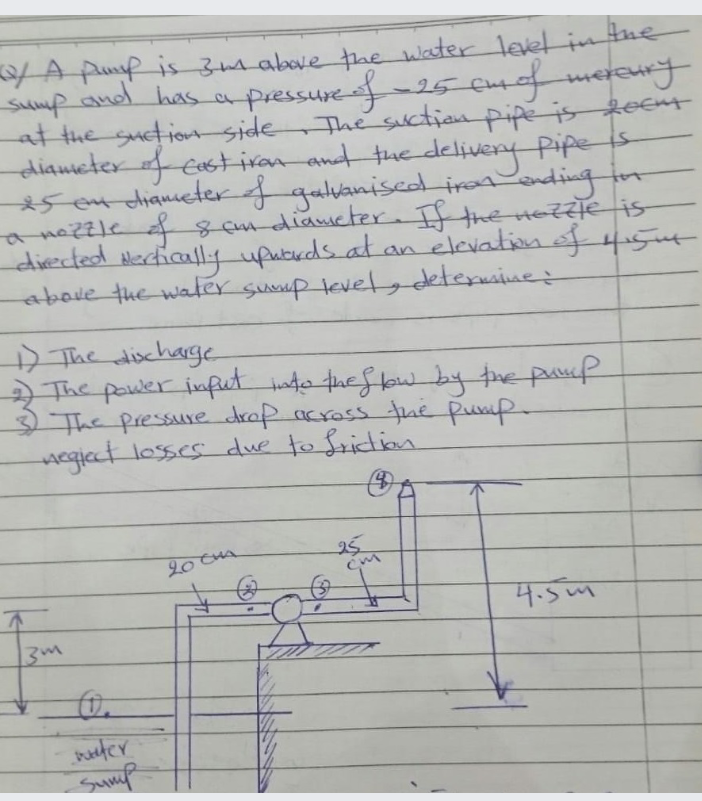 Q/ A pump is 3m above the water level in the
sump and has a pressure of -25 cm of mercury
at the suction side. The suction pipe is 20cm
diameter of cast iron and the delivery pipe is
25 cm diameter of galvanised iron ending in
a nozzle of 8 cm diameter. If the nozzle is
directed vertically upwards at an elevation of 4.5m
above the water sump level, determine:
1) The discharge
2) The power input into the flow by the pump
3) The pressure drop across the pump.
neglect losses due to friction
4
20 cm
25
cm
2
3
4.5m
3m
1
water
sump